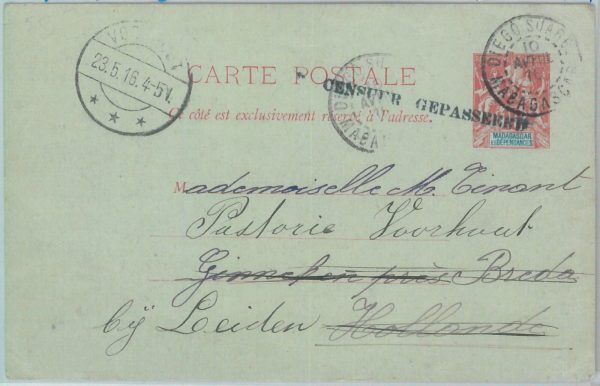 VOORHOUT
23.5.16.4-5V.
CARTE POSTALE
CENSUUR GEPASSEERD
DIEGO SUAREZ
10
MADAGASCAR
DIEGO SU
MADAGA
MADAGASCAR
ET DÉPENDANCES
Ce côté est exclusivement réservé à l'adresse.
Mademoiselle M. Tinant
Pastorie Voorhout
Ginneken près Breda
bij Leiden Hollande